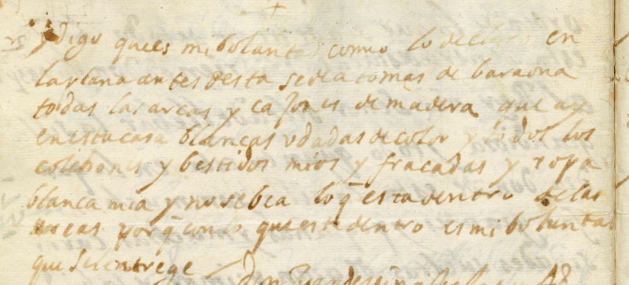 digo que es mi boluntad como lo declaro en
la plana antes desta se de a tomas de baraona
todas las arcas y cajones de madera que ay
en esta casa blancas y dadas de color y todos los
colchones y bestidos mios y fracadas y ropa
blanca mia y no se bea lo q esta dentro de las
arcas por q con lo que esta dentro es mi boluntad
que se le entrege Don Juan